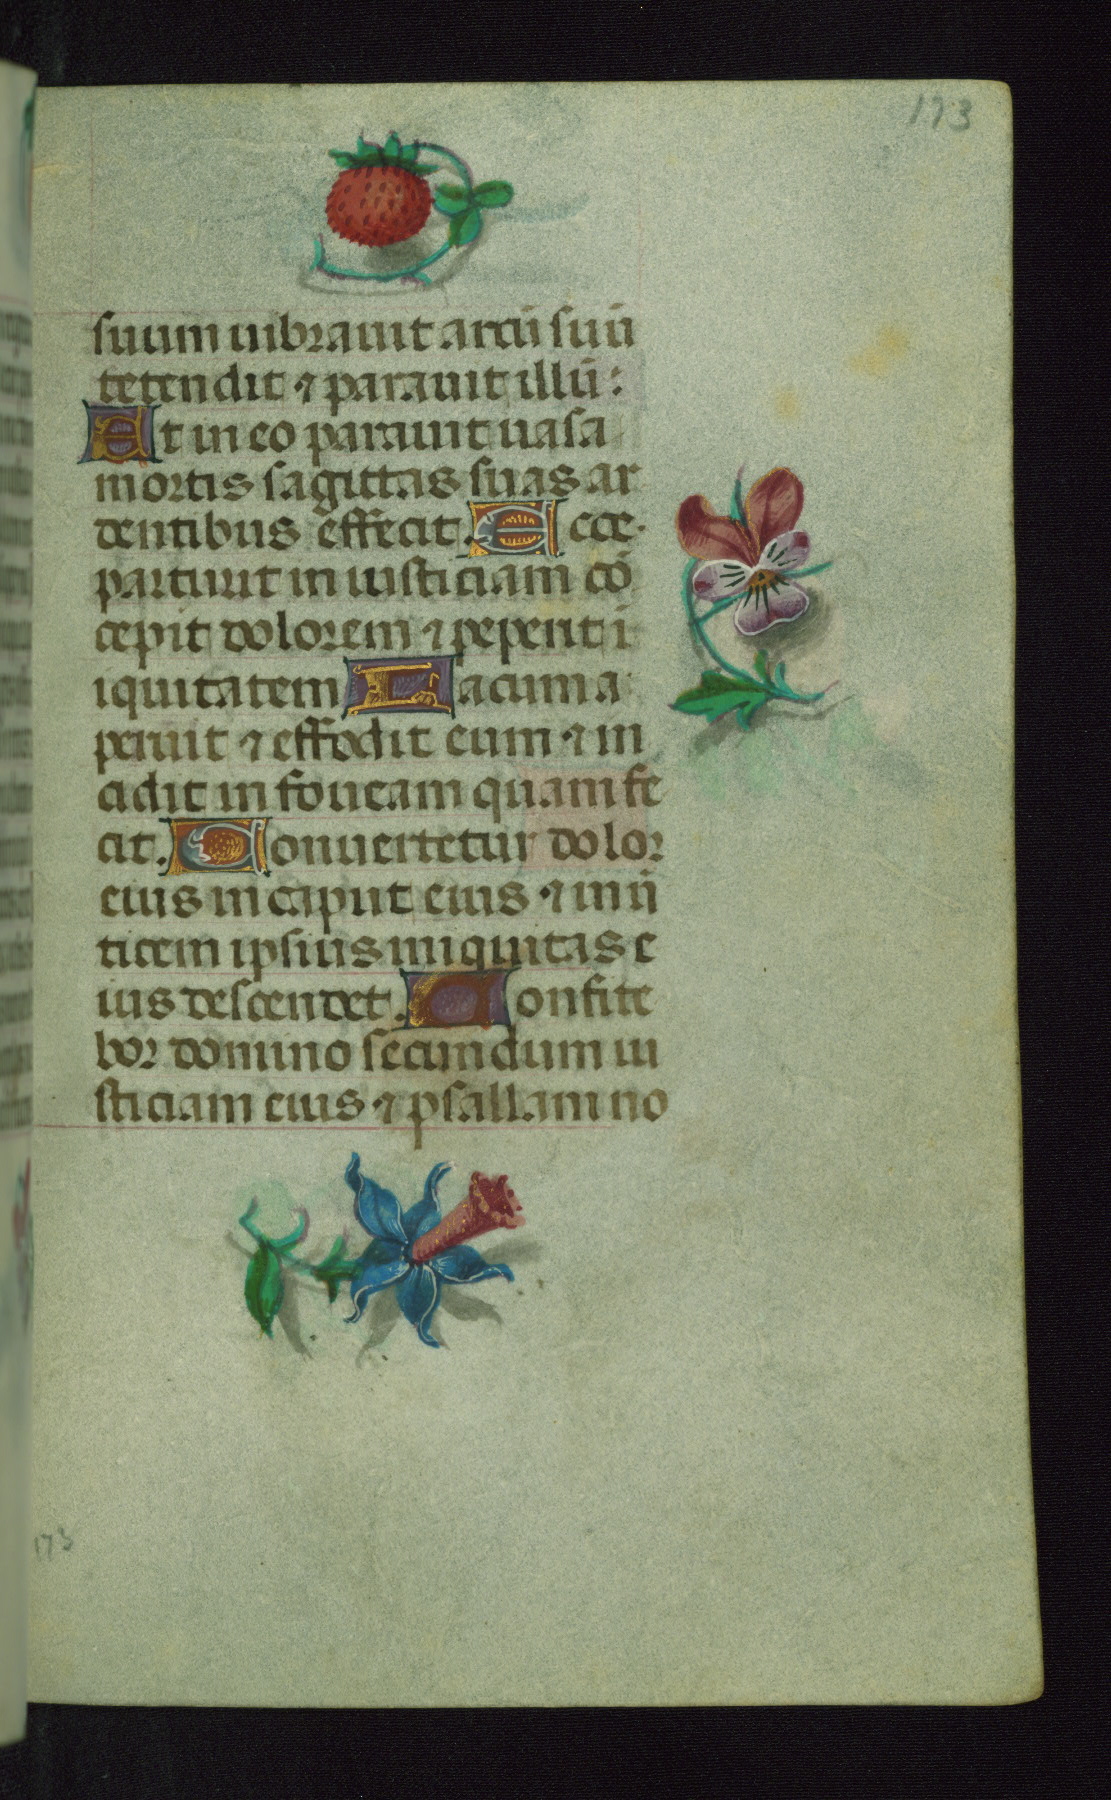 173
suum vibravit arcū suū
tetendit ⁊ paravit illū:
Et in eo paravit vasa
mortis sagittas suas ar
dentibus effecit. Ecce
parturit in iusticiam cō
cepit dolorem ⁊ peperit i
iquitatem Lacum a
peruit ⁊ effodit eum ⁊ in
cidit in foveam quam fe
cit. Convertetur dolor
eius in caput eius ⁊ in v̄
ticem ipsius iniquitas e
ius descendet. Confite
bor domino secundum iu
sticiam eius ⁊ psallam no
173